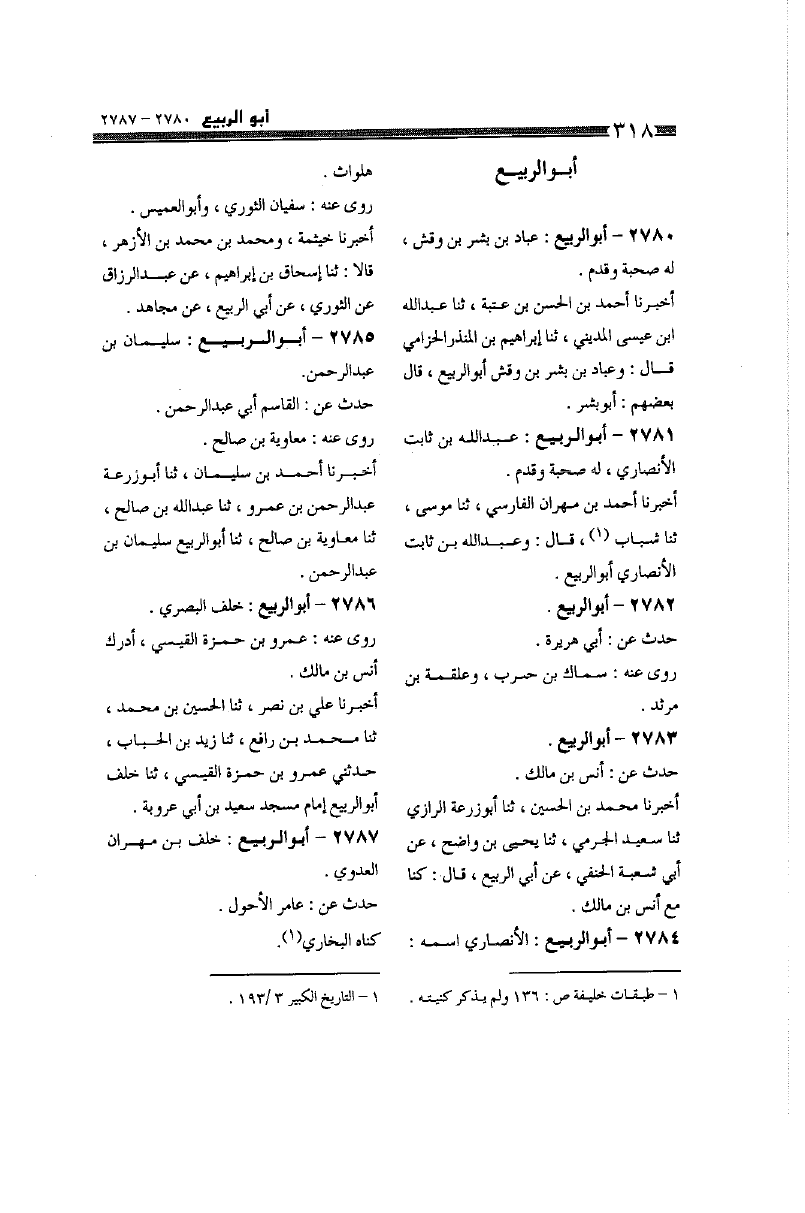 أبو الربيع ٢٧٨٠ – ٢٧٨٧
٣١٨
أبـو الربيــع
٢٧٨٠ – أبوالربيع : عباد بن بشر بن وقش ،
له صحبة وقدم .
أخبرنا أحمد بن الحسن بن عتبة ، ثنا عبدالله
ابن عيسى المديني ، ثنا إبراهيم بن المنذر الحزامي
قـال : وعباد بن بشر بن وقش أبوالربيع ، قال
بعضهم : أبوبشر .
٢٧٨١ – أبوالربيع : عبدالله بن ثابت
الأنصاري ، له صحبة وقدم .
أخبرنا أحمد بن مهران الفارسي ، ثنا موسى ،
ثنا شباب (١) ، قـال : وعبدالله بن ثابت
الأنصاري أبوالربيع .
٢٧٨٢ – أبوالربيع .
حدث عن : أبي هريرة .
روى عنه : سماك بن حرب ، وعلقمة بن
مرثد .
٢٧٨٣ – أبوالربيع .
حدث عن : أنس بن مالك .
أخبرنا محمد بن الحسين ، ثنا أبوزرعة الرازي
ثنا سعيد الجرمي ، ثنا يحيى بن واضح ، عن
أبي شعبة الحنفي ، عن أبي الربيع ، قال : كنا
مع أنس بن مالك .
٢٧٨٤ – أبوالربيع : الأنصاري اسمه :
١ – طبقات خليفة ص : ١٣٦ ولم يذكر كنيته .
هلواث .
روى عنه : سفيان الثوري ، وأبوالعميس .
أخبرنا خيثمة ، ومحمد بن محمد بن الأزهر ،
قالا : ثنا إسحاق بن إبراهيم ، عن عبدالرزاق
عن الثوري ، عن أبي الربيع ، عن مجاهد .
٢٧٨٥ – أبوالربيع : سليمان بن
عبدالرحمن.
حدث عن : القاسم أبي عبدالرحمن .
روى عنه : معاوية بن صالح .
أخبرنا أحمد بن سليمان ، ثنا أبوزرعة
عبدالرحمن بن عمرو ، ثنا عبدالله بن صالح ،
ثنا معاوية بن صالح ، ثنا أبوالربيع سليمان بن
عبدالرحمن .
٢٧٨٦ – أبوالربيع : خلف البصري .
روى عنه : عمرو بن حمزة القيسي ، أدرك
أنس بن مالك .
أخبرنا علي بن نصر ، ثنا الحسين بن محمد ،
ثنا محمد بن رافع ، ثنا زيد بن الحباب ،
حدثني عمرو بن حمزة القيسي ، ثنا خلف
أبوالربيع إمام مسجد سعيد بن أبي عروبة .
٢٧٨٧ – أبوالربيع : خلف بن مهران
العدوي .
حدث عن : عامر الأحول .
كناه البخاري(١).
١ – التاريخ الكبير ٣ /١٩٣ .